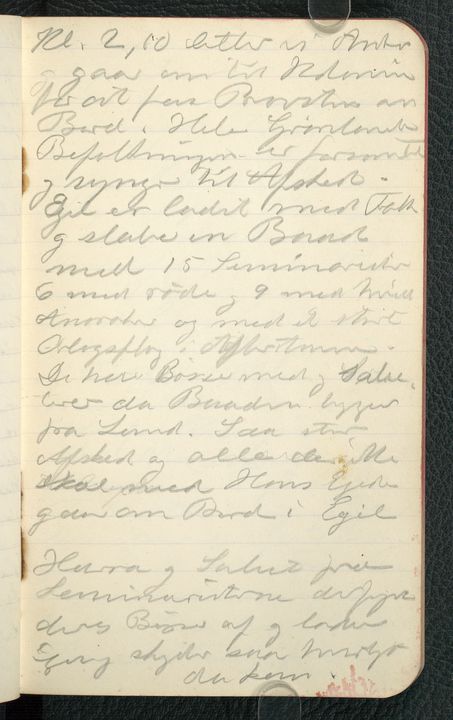 Kl. 2,10 letter vi Anker
og gaar om til Kolonien
for at faa Provsten om
Bord. Hele Grønlandske
Befolkningen er forsamlet
og synger til Afsked.
Egil er ladet med Folk
og slæber en Baad
med 15 Seminarister
6 med røde og 9 med hvide
Anorakker og med et stort
Orlogsflag i Agterstavnen.
De har Bøsser med og Salu-
terer da Baaden
fra Land. Saa stor
Afsked og alle der ikke
skal med Hans Egede
gaar om Bord i Egil
Hurra og Salut fra
Seminaristerne
deres Bøsser af og lader
igen og skyder saa hurtigt
de kan.